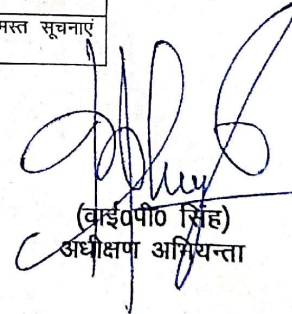 मस्त सूचनाएं
(वाई0पी0 सिंह)
अधीक्षण अभियन्ता